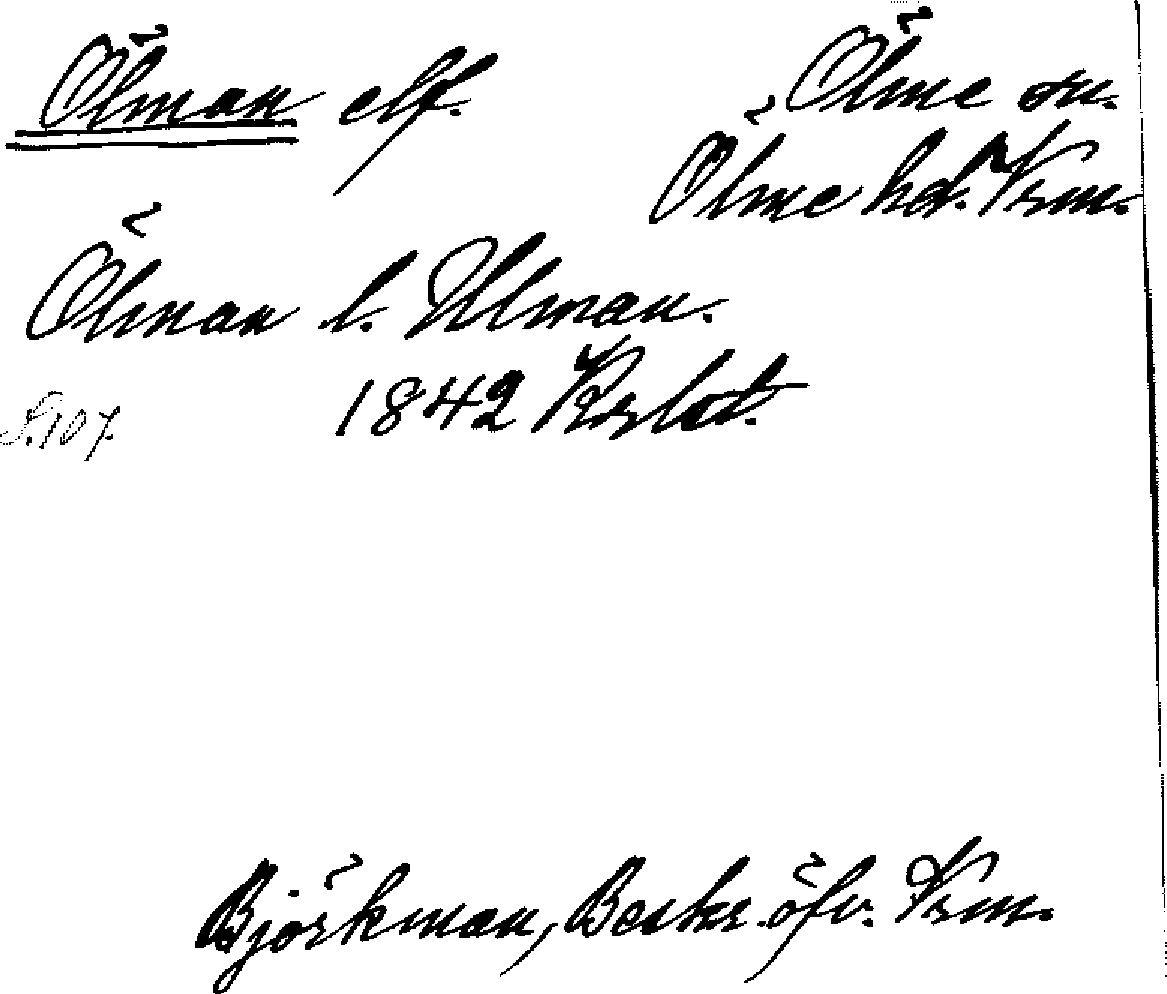 Ölman elf.
Ölme sn.
Ölme hd. Vrm.
Ölman l. Ulman.
1842
S. 107.
Björkman, Beskr. öfv. Vrm.